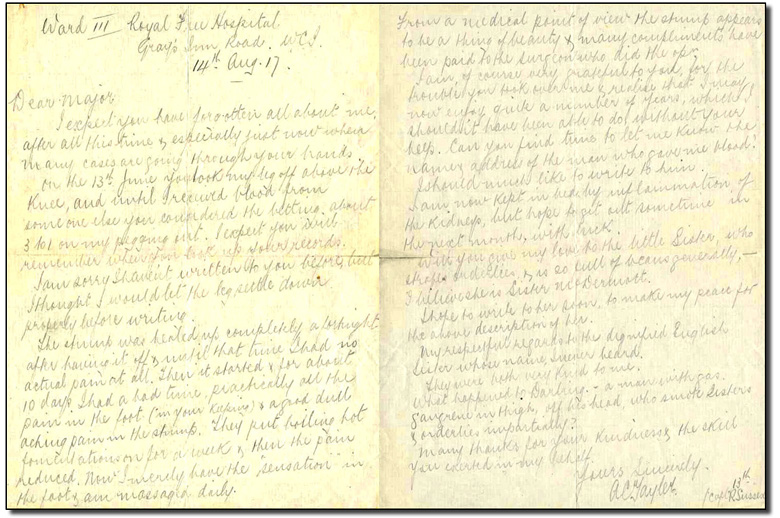 Ward III Royal Free Hospital
Gray's Inn Road. W.C.1.
14th Aug. 17.
Dear Major
I expect you have forgotten all about me,
after all this time & especially just now when
many cases are going through your hands.
On the 13th June you took my leg off above the
Knee, and until I received blood from
someone else you considered the betting about
3 to 1 on my pegging out. I expect you will
remember when you look up your records.
I am sorry I haven't written to you before, but
I thought I would let the leg settle down
properly before writing.
The stump was healed up completely a fortnight
after having it off & until that time I had no
actual pain at all. Then it started & for about
10 days I had a bad time, practically all the
pain in the foot (in your keeping) & a good dull
aching pain in the stump. They put boiling hot
fomentations on for a week & then the pain
reduced. Now I merely have the "sensation" in
the foot & am massaged daily.
From a medical point of view the stump appears
to be a thing of beauty & many compliments have
been paid to the surgeon who did the op:
I am, of course very grateful to you, for the
trouble you took over me & realise that I may
now enjoy quite a number of years, which I
shouldn't have been able to do, without your
help. Can you find time to let me know the
name & address of the man who gave me blood?
I should much like to write to him.
I am now kept in bed by inflammation of
the Kidneys, but hope to get out sometime in
the next month, with luck.
Will you give my love to the little Sister, who
& is so full of beans generally, —
I believe she is Sister McDermott.
I hope to write to her soon, to make my peace for
the above description of her.
My respectful regards to the dignified English
Sister whose name I never heard.
They were both very kind to me.
What happened to Darling - a man with gas
gangrene in thigh, off his head, who smote Sisters
& orderlies impartially?
Many thanks for your kindness & the skill
you exerted in my behalf.
Yours Sincerely.
A.C. Tayler.
Capt 13th
R. Sussex